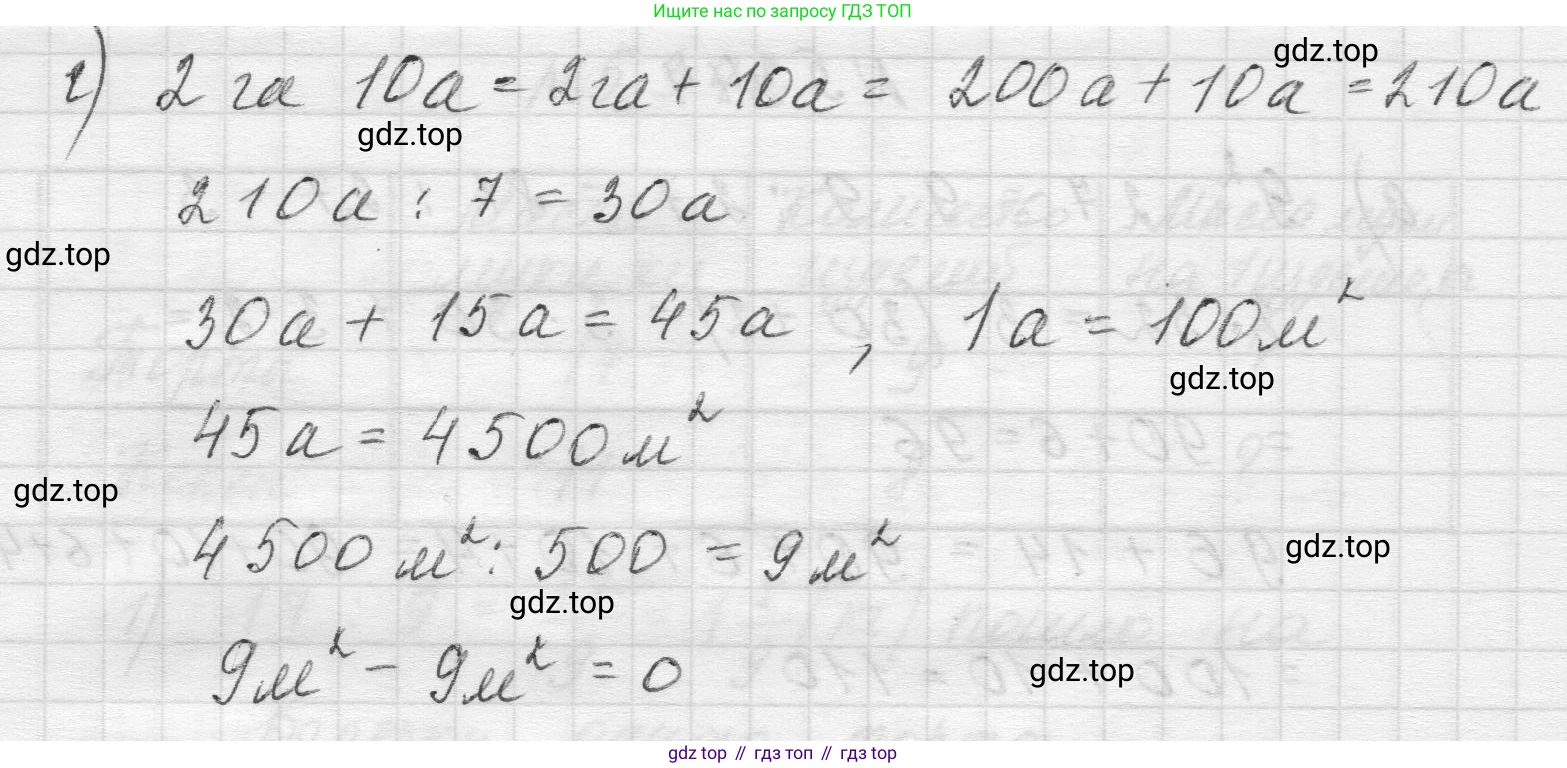 Ищите нас по запросу ГДЗ ТОП
gdz.top
г) 2 га 10а = 2га + 10а = 200а + 10а = 210а
gdz.top
210а : 7 = 30а
gdz.top
30а + 15а = 45а , 1а = 100м²
gdz.top
45а = 4500м²
gdz.top
4500м² : 500 = 9м²
gdz.top
gdz.top
9м² - 9м² = 0
gdz.top
gdz top // гдз топ // гдз top